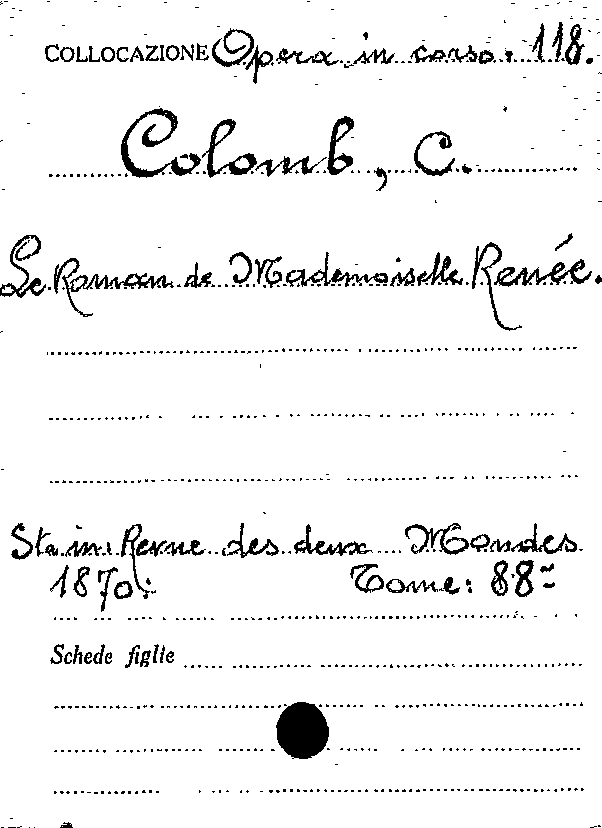 COLLOCAZIONE Opera in corso. 118.
Colomb, C.
Le Roman de Mademoiselle Renée.
Sta in: Revue des deux Mondes
1870: Tome: 88~
Schede figlie